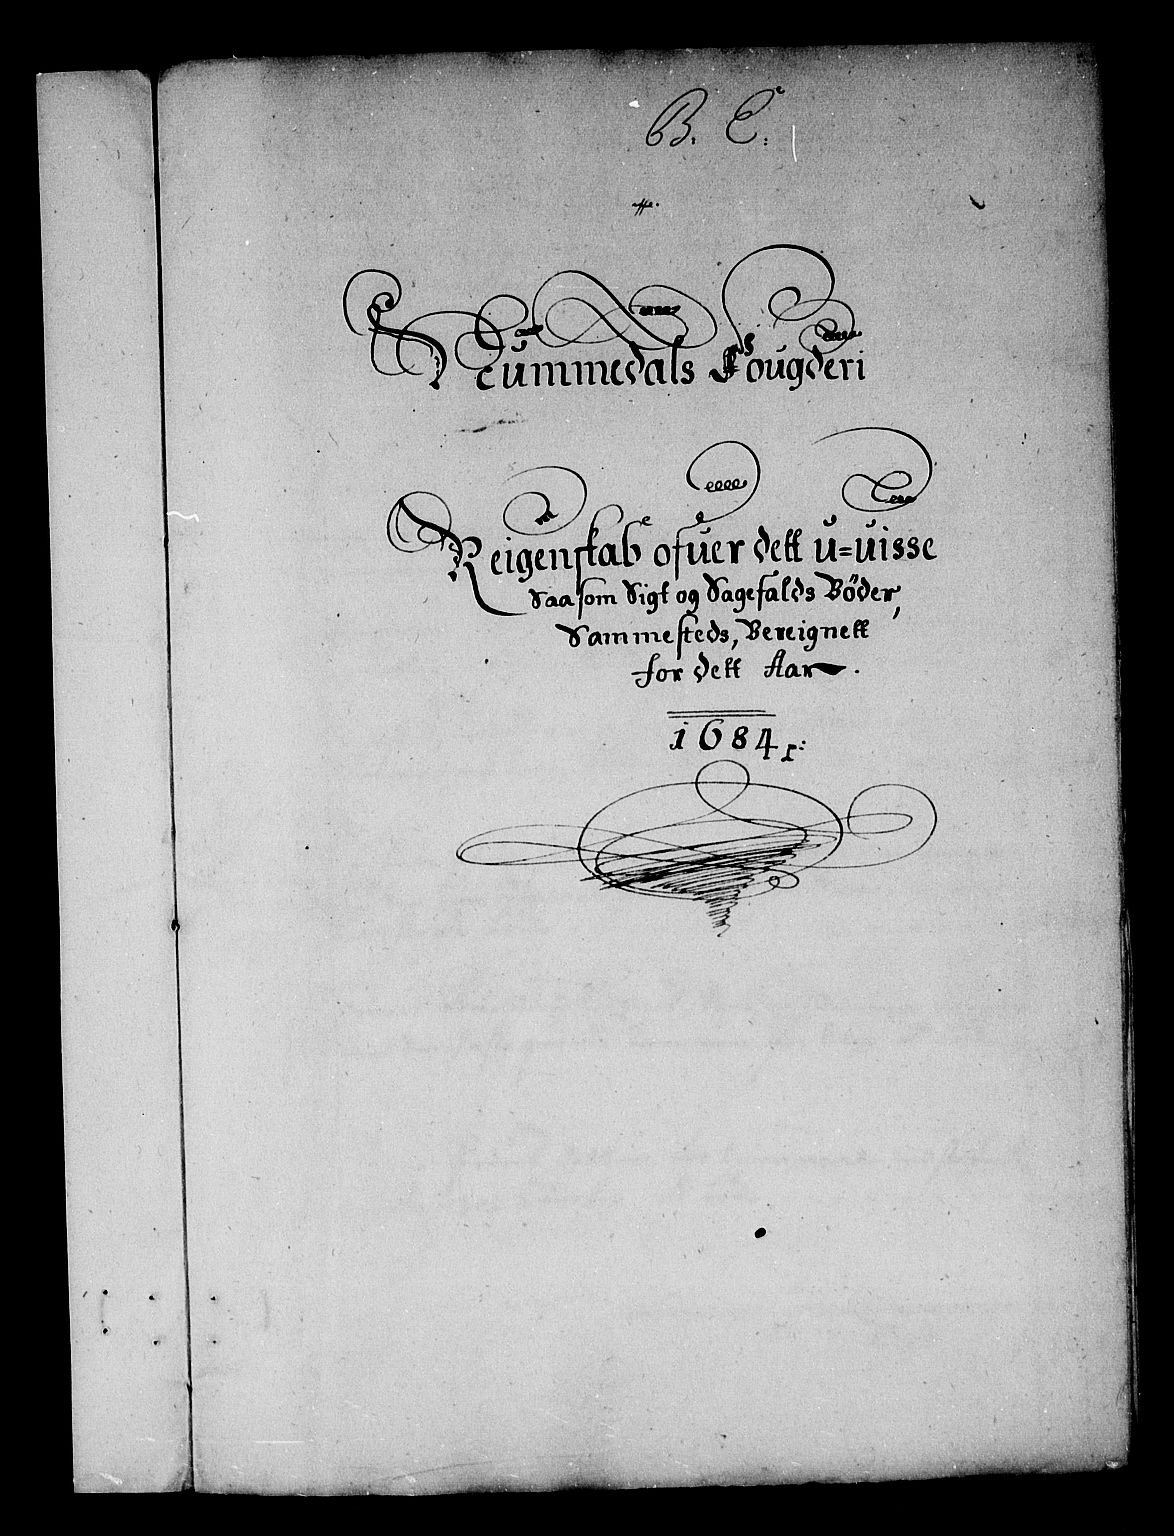 B. C.
Neummedals Fougderi
Reigenskab ofuer dett u=uisse
Saasom Sigt og Sagefalds Bøder,
Sammesteds, Bereignett
for dett Aar.
1684